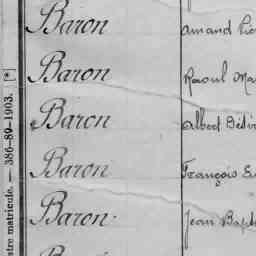 Baron Amand
Baron Raoul
Baron Albert
Baron François
Baron Jean Bapt
Baron
stre matricule. — 386-89-1903. [*]